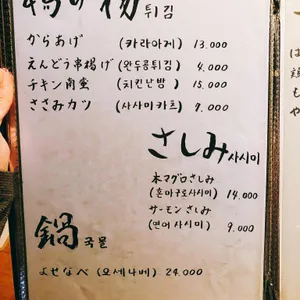 揚げ物 튀김
からあげ (카라아게) 13.000
えんどう串揚げ (완두콩튀김) 4.000
チキン南蛮 (치킨난방) 15.000
ささみカツ (사사미카츠) 9.000
さしみ 사시미
本マグロさしみ
(혼마구로사시미) 14.000
サーモンさしみ
(연어 사시미) 9.000
鍋 국물
よせなべ (요세나베) 24.000
は
鶏
も
や